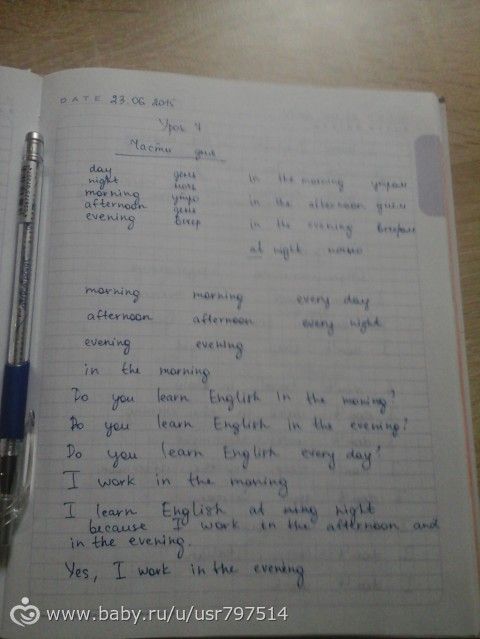 DATE 23.06.2015
Урок 7
Части дня
day день in the morning утром
night ночь in the afternoon днём
morning утро in the evening вечером
afternoon день at night ночью
evening вечер
morning morning every day
afternoon afternoon every night
evening evening
in the morning
Do you learn English in the moning?
Do you learn English in the evening?
Do you learn English every day?
I work in the moning
I learn English at night
because I work in the afternoon and
in the evening.
Yes, I work in the evening
www.baby.ru/u/usr797514